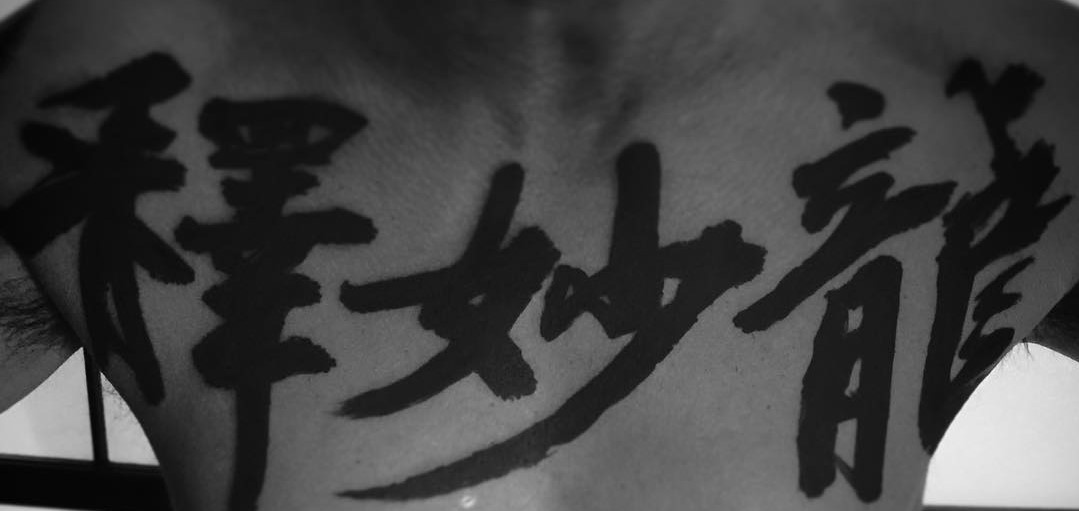 釋妙龍